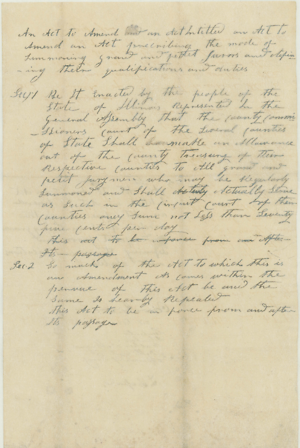 An Act to Amend an Act Entitled an Act to
Amend an Act prescribing the mode of
Summoning Grand and petit Jurors and defin
ing their qualifications and duties
Sec 1 Be It Enacted by the people of the
State of Illinois Represented In the
General Assembly that the County Commis
sioners Court of the Several Counties
of State Shall make an Allowance
out of the County Treasury of their
Respective Counties to All grand and
petit Jurors who may be Regularly
Summoned and Shall Actually Serve
as Such in the Circuit Court of their
Counties any Sum not Less than Seventy
five cents per day
this act to be in force from and After
Its passage
Sec 2 So much of the Act to which this is
an Amendment As comes within the
perview of this Act be and the
Same Is hereby Repealed
this Act to be in force from and after
Its passage